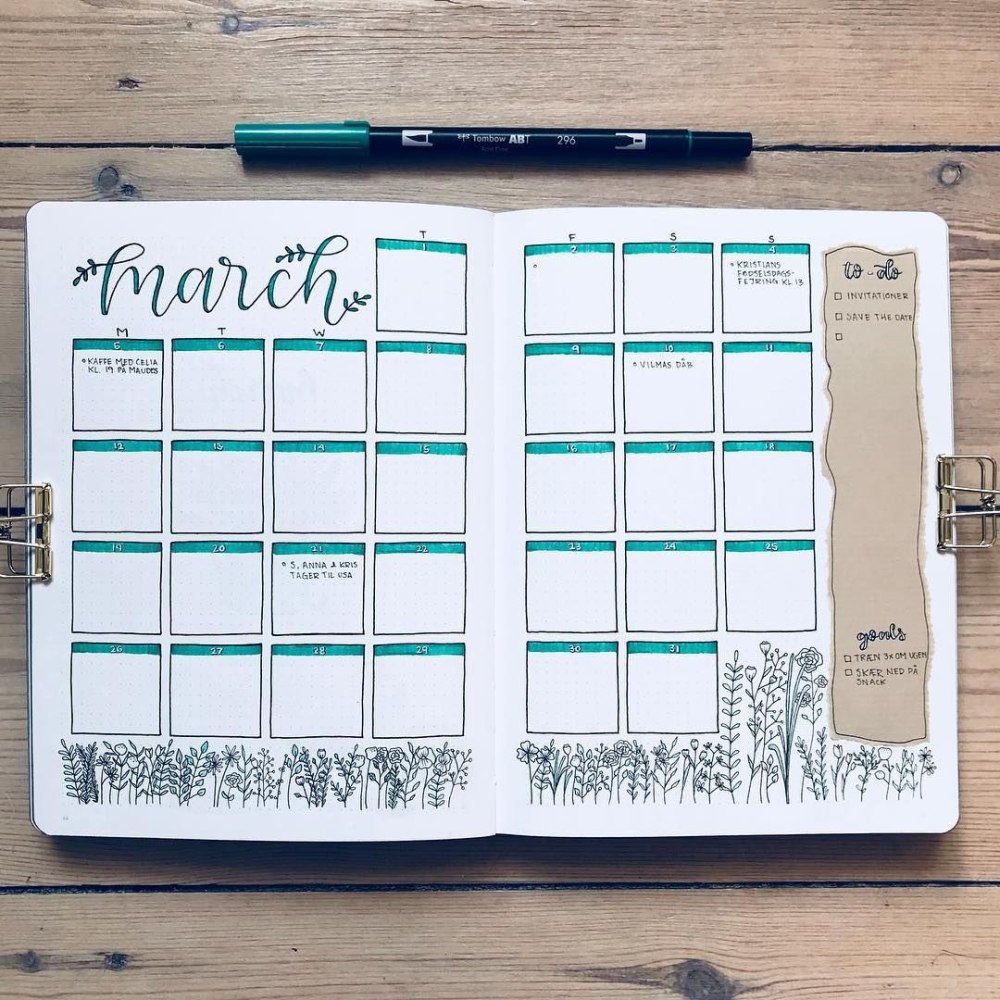 Tombow ABT 296
march
T
F S S
1
2 3 4
KRISTIANS
FØDSELSDAGS-
FEJRING KL 13
M T W
5 6 7 8
KAFFE MED CELIA
KL. 19 PÅ MAUDES
9 10 11
VILMAS DÅB
12 13 14 15
16 17 18
19 20 21 22
S, ANNA & KRIS
TAGER TIL USA
23 24 25
26 27 28 29
30 31
to-do
INVITATIONER
SAVE THE DATE
goals
TRÆN 3X OM UGEN
SKÆR NED PÅ
SNACK